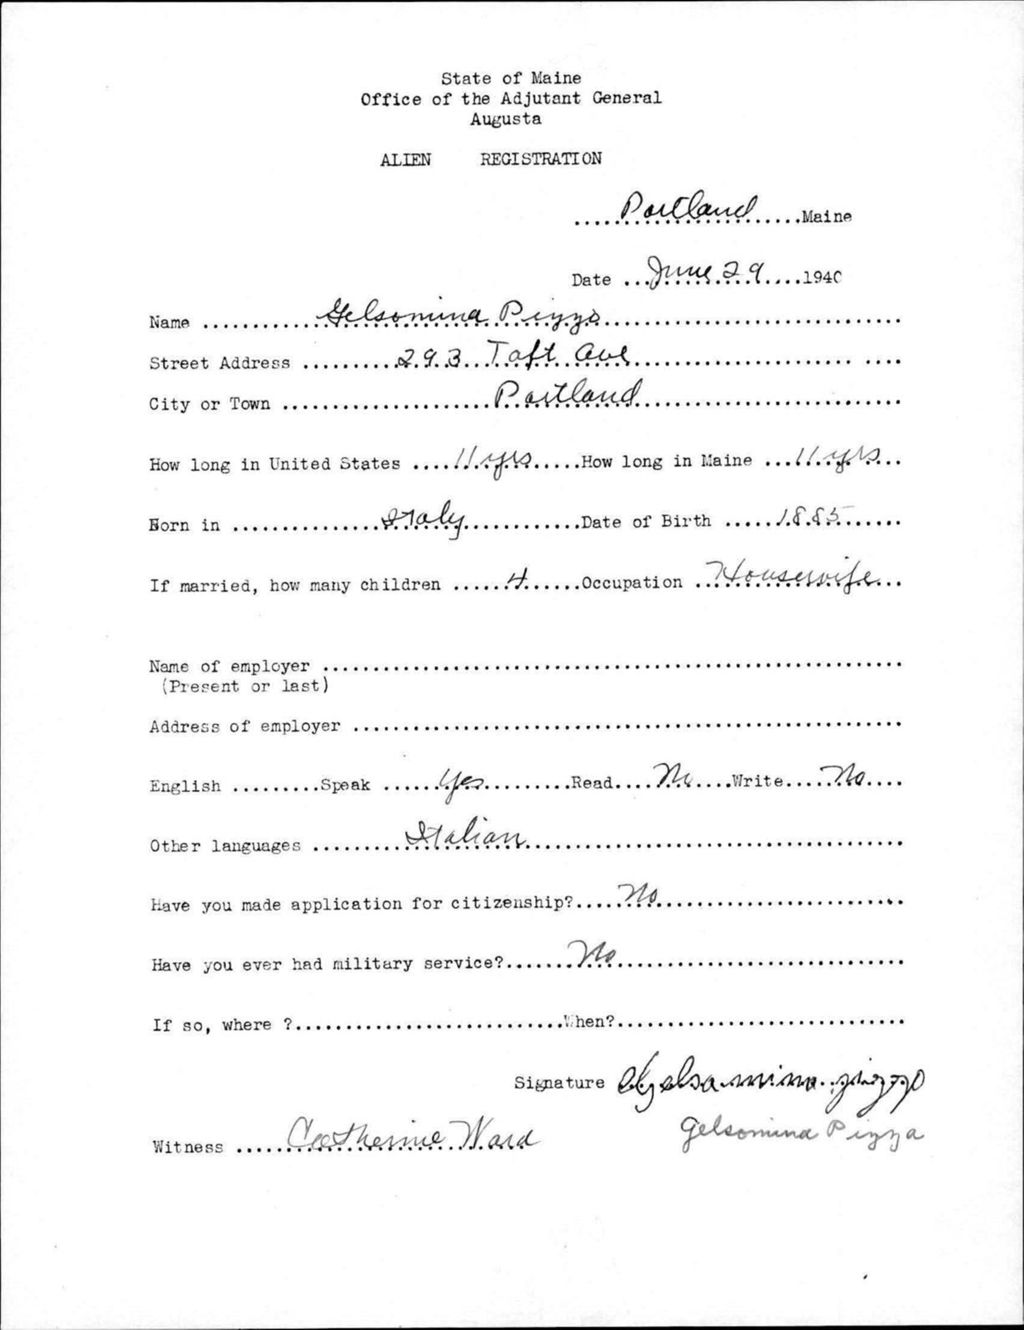 State of Maine
Office of the Adjutant General
Augusta
ALIEN REGISTRATION
Portland Maine
Date June 29 1940
Name Gelsomina Pizzo
Street Address 293 Taft Ave
City or Town Portland
How long in United States 11 yrs How long in Maine 11 yrs
Born in Italy Date of Birth 1885
If married, how many children 4 Occupation Housewife
Name of employer
(Present or last)
Address of employer
English Speak Yes Read No Write No
Other languages Italian
Have you made application for citizenship? No
Have you ever had military service? No
If so, where ? When?
Signature Gelsamina pizzo
Gelsomina Pizza
Witness Catherine Ward